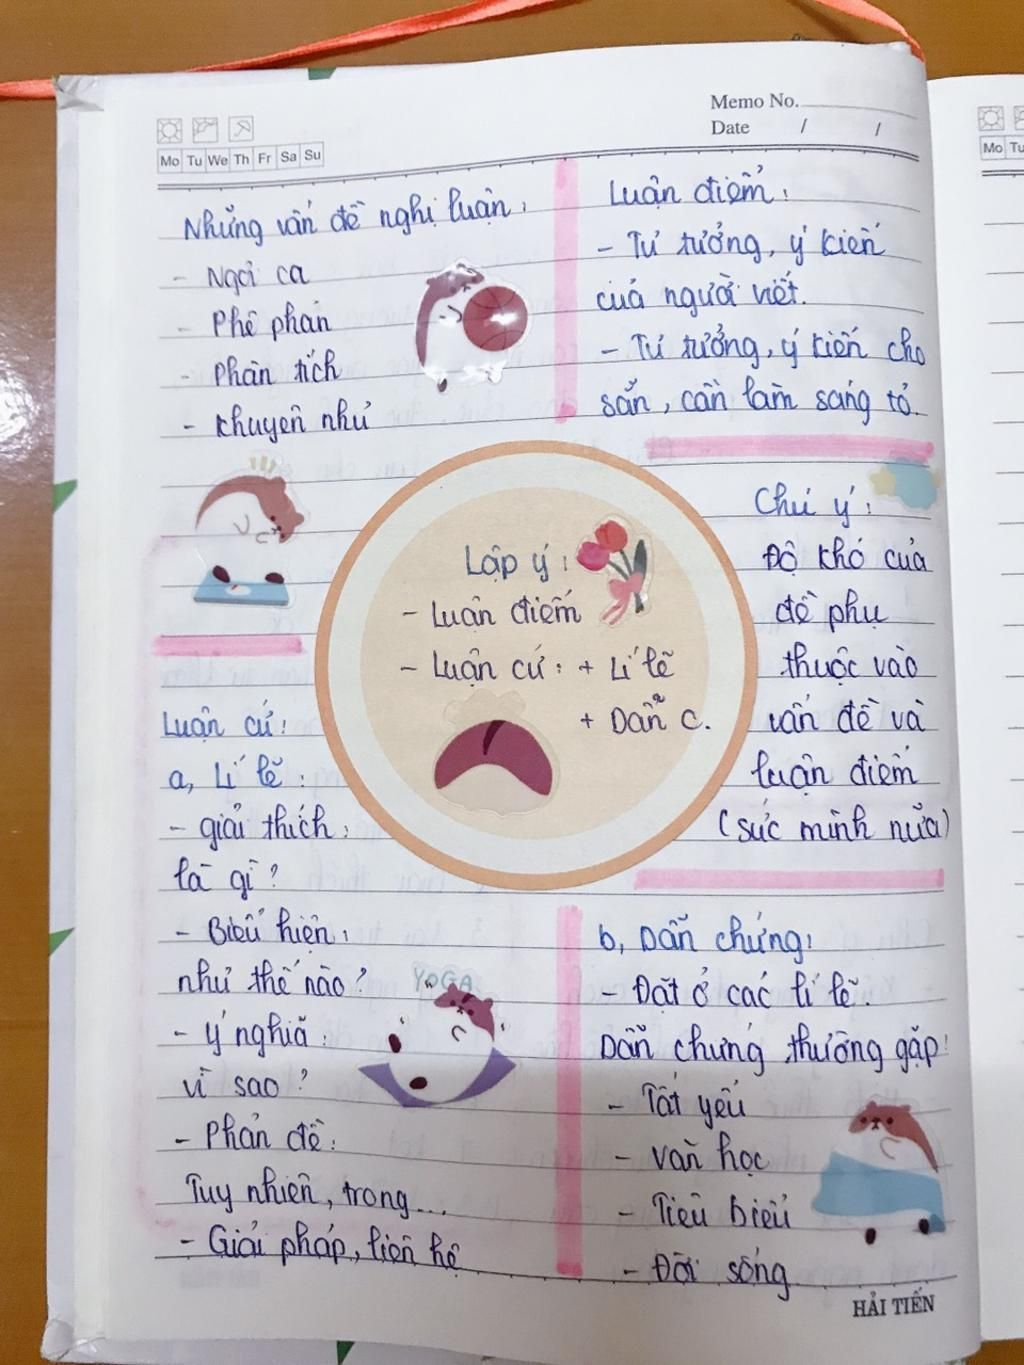 Memo No.
Date / /
Mo Tu We Th Fr Sa Su
Những vấn đề nghị luận:
- Ngợi ca
- Phê phán
- Phân tích
- Khuyên nhủ
Luận điểm:
- Tư tưởng, ý kiến
của người viết.
- Tư tưởng, ý kiến cho
sẵn, cần làm sáng tỏ.
Lập ý:
- Luận điểm
- Luận cứ: + Lí lẽ
+ Dẫn c.
Chú ý:
Độ khó của
đề phụ
thuộc vào
vấn đề và
luận điểm
(sức mình nữa)
Luận cứ:
a, Lí lẽ:
- giải thích:
là gì?
- Biểu hiện:
như thế nào?
- Ý nghĩa:
vì sao?
- Phản đề:
Tuy nhiên, trong...
- Giải pháp, liên hệ
YOGA
b, Dẫn chứng:
- Đặt ở các lí lẽ.
Dẫn chứng thường gặp:
- Tất yếu
- Văn học
- Tiêu biểu
- Đời sống
HẢI TIẾN
Mo Tu